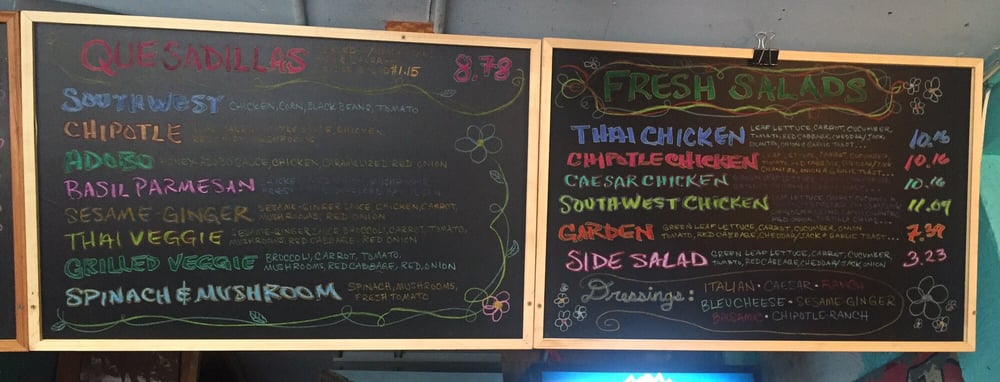 QUESADILLAS
$1.15
8.78
SOUTHWEST CHICKEN, CORN, BLACK BEANS, TOMATO
CHIPOTLE
CHICKEN,
ADOBO HONEY ADOBO SAUCE, CHICKEN, CARAMELIZED RED ONION
BASIL PARMESAN
SESAME-GINGER SESAME-GINGER SAUCE, CHICKEN, CARROT,
MUSHROOMS, RED ONION
THAI VEGGIE SESAME-GINGER SAUCE, BROCCOLI, CARROT, TOMATO,
MUSHROOMS, RED CABBAGE, RED ONION
GRILLED VEGGIE BROCCOLI, CARROT, TOMATO,
MUSHROOMS, RED CABBAGE, RED, ONION
SPINACH & MUSHROOM SPINACH, MUSHROOMS,
FRESH TOMATO
FRESH SALADS
THAI CHICKEN LEAF LETTUCE, CARROT, CUCUMBER,
TOMATO, RED CABBAGE, CHEDDAR/JACK,
CILANTRO, ONION & GARLIC TOAST... 10.16
CHIPOTLE CHICKEN LEAF LETTUCE, CARROT, CUCUMBER,
CILANTRO, ONION & GARLIC TOAST... 10.16
CAESAR CHICKEN 10.16
SOUTHWEST CHICKEN 11.09
GARDEN GREEN LEAF LETTUCE, CARROT, CUCUMBER, ONION
TOMATO, RED CABBAGE, CHEDDAR/JACK & GARLIC TOAST... 7.39
SIDE SALAD GREEN LEAF LETTUCE, CARROT, CUCUMBER,
TOMATO, RED CABBAGE, CHEDDAR/JACK ONION 3.23
Dressings: ITALIAN • CAESAR • RANCH
BLEU CHEESE • SESAME GINGER
BALSAMIC • CHIPOTLE-RANCH